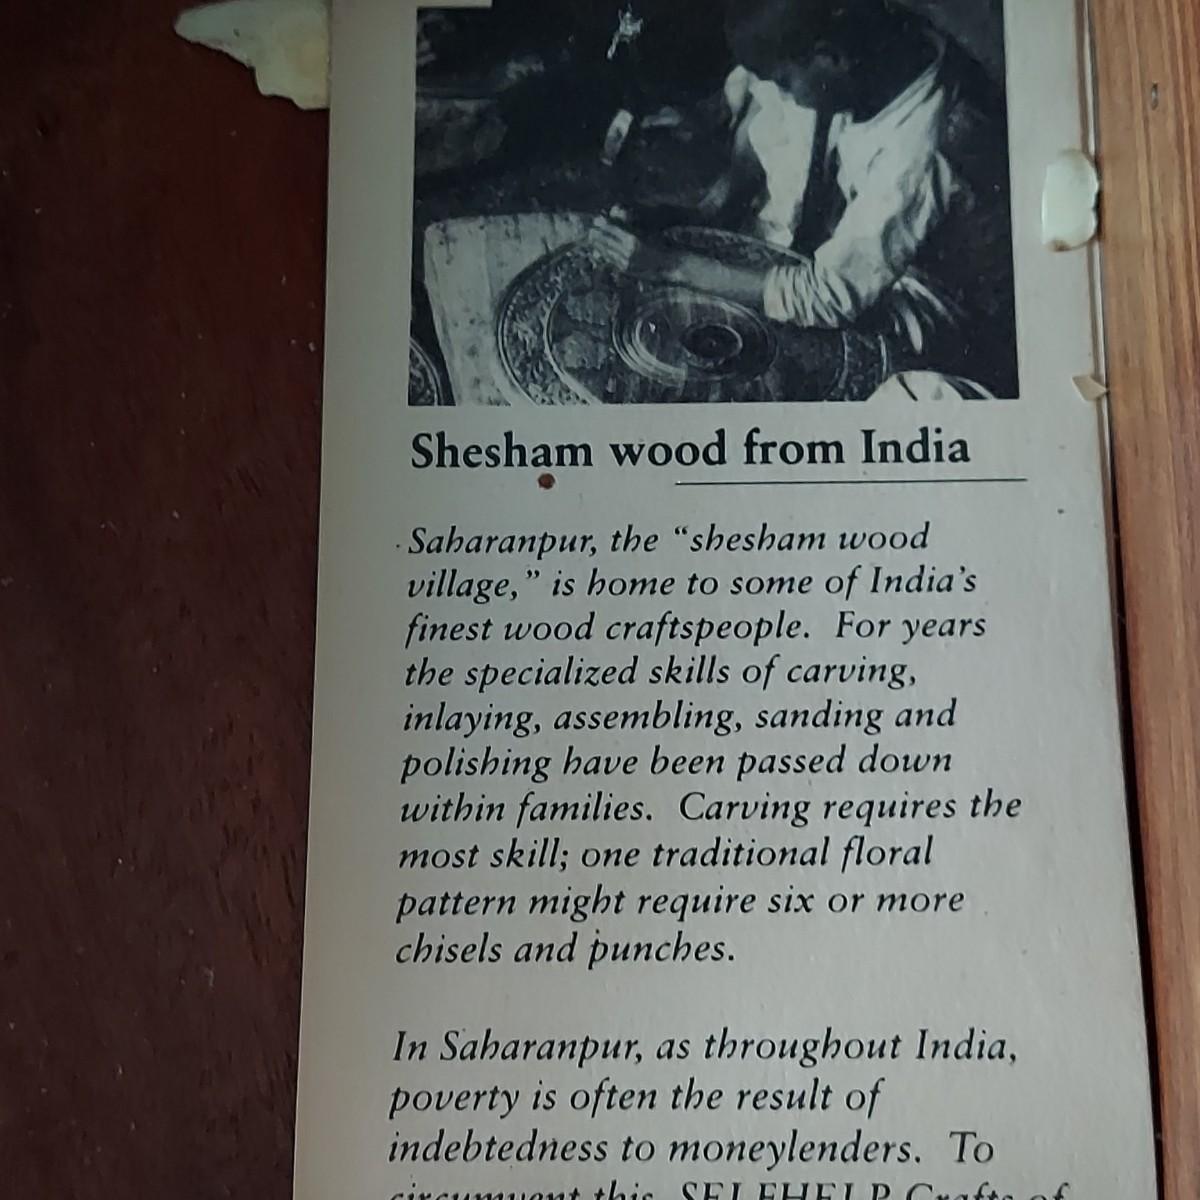 Shesham wood from India
Saharanpur, the “shesham wood
village,” is home to some of India’s
finest wood craftspeople. For years
the specialized skills of carving,
inlaying, assembling, sanding and
polishing have been passed down
within families. Carving requires the
most skill; one traditional floral
pattern might require six or more
chisels and punches.
In Saharanpur, as throughout India,
poverty is often the result of
indebtedness to moneylenders. To
circumvent this, SELFHELP Crafts of